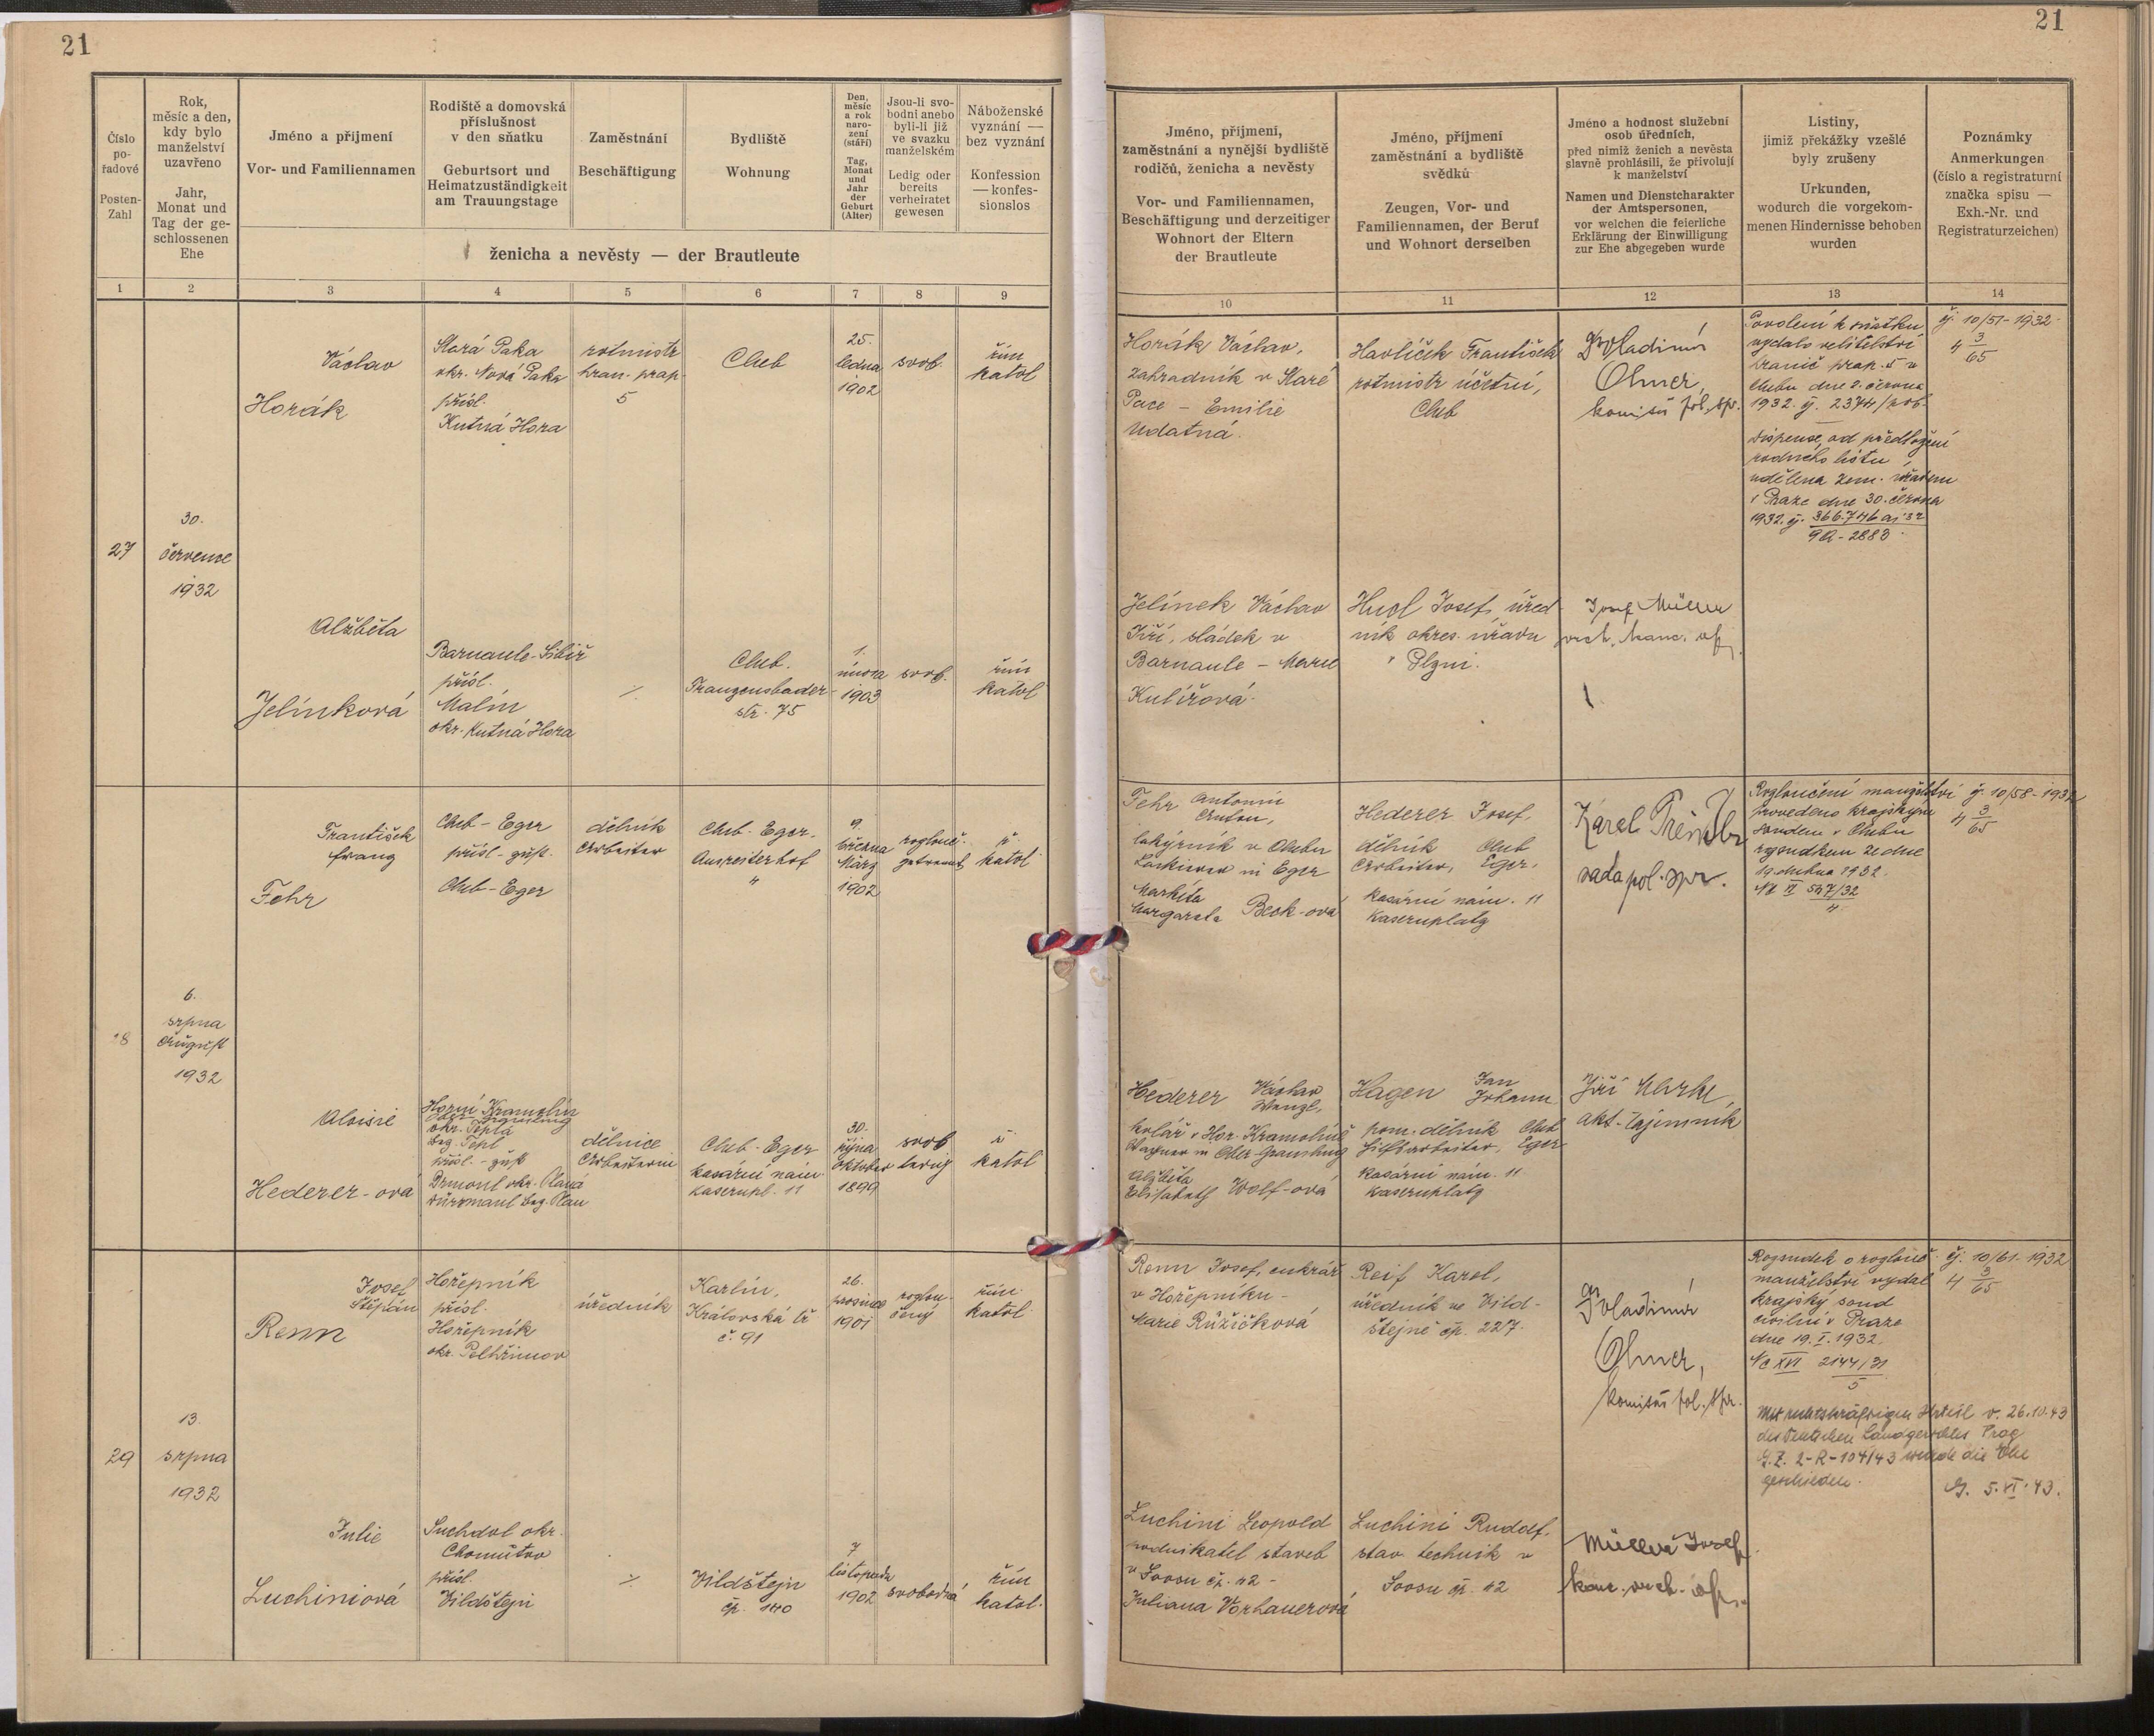 21
21
Číslo
po-
řadové
Posten-
Zahl
Rok,
měsíc a den,
kdy bylo
manželství
uzavřeno
Jahr,
Monat und
Tag der ge-
schlossenen
Ehe
Jméno a přijmení
Vor- und Familiennamen
Rodiště a domovská
příslušnost
v den sňatku
Geburtsort und
Heimatzuständigkeit
am Trauungstage
Zaměstnání
Beschäftigung
Bydliště
Wohnung
Den,
měsíc
a rok
naro-
zení
(stáří)
Tag,
Monat
und
Jahr
der
Geburt
(Alter)
Jsou-li svo-
bodni anebo
byli-li již
ve svazku
manželském
Ledig oder
bereits
verheiratet
gewesen
Náboženské
vyznání —
bez vyznání
Konfession
— konfes-
sionslos
ženicha a nevěsty — der Brautleute
Jméno, přijmení,
zaměstnání a nynější bydliště
rodičů, ženicha a nevěsty
Vor- und Familiennamen,
Beschäftigung und derzeitiger
Wohnort der Eltern
der Brautleute
Jméno, přijmení
zaměstnání a bydliště
svědků
Zeugen, Vor- und
Familiennamen, der Beruf
und Wohnort derselben
Jméno a hodnost služební
osob úředních,
před nimiž ženich a nevěsta
slavně prohlásili, že přivolují
k manželství
Namen und Dienstcharakter
der Amtspersonen,
vor welchen die feierliche
Erklärung der Einwilligung
zur Ehe abgegeben wurde
Listiny,
jimiž překážky vzešlé
byly zrušeny
Urkunden,
wodurch die vorgekom-
menen Hindernisse behoben
wurden
Poznámky
Anmerkungen
(číslo a registraturní
značka spisu —
Exh.-Nr. und
Registraturzeichen)
1 2 3 4 5 6 7 8 9 10 11 12 13 14
27
30.
července
1932
Václav
Horák
Stará Paka
okr. Nová Paka
přísl.
Kutná Hora
rotmistr
hran. prap.
5
Cheb
25.
ledna
1902
svob.
řím
katol
Horák Václav,
zahradník v Staré
Pace - Emilie
Udatná.
Havlíček František
rotmistr účetní,
Cheb
Dr Vladimír
Olmer,
komisař pol. spr.
Povolení k sňatku
vydalo velitelství
hranič. prap. 5 v
Chebu dne 2. června
1932. čj. 2374/
Dispense od předložení
rodného listu
udělena zem. úřadem
v Praze dne 30. června
1932. čj. 366.746 ai 32
9a-2883
čj. 10/51-1932
4 3
65
Alžběta
Jelínková
Barnaule-Sibiř
přísl.
Malín
okr. Kutná Hora
Cheb.
Franzensbader-
str. 75
1.
února
1903
svob.
řím
katol
Jelínek Václav
Jiří, sládek v
Barnaule - Marie
Kulířová.
Hugl Josef, úřed-
ník okres. úřadu
v Plzni.
Josef Müller
vrch. kanc. of.
28
6.
srpna
August
1932
František
Franz
Fehr
Cheb - Eger
přísl - zust.
Cheb-Eger
dělník
Arbeiter
Cheb-Eger.
Ausreiterhof
"
9.
března
März
1902
rozlouč.
getrennt
ř.
katol
Fehr Antonín
Anton,
lakýrník v Chebu
Lackierer in Eger
Markéta
Margareta Beck-ová
Hederer Josef,
dělník Cheb
Arbeiter, Eger,
kasární nám. 11
Kasernplatz
Karel
rada pol. spr.
Rozloučení manželství
provedeno krajským
soudem v Chebu
rozsudkem ze dne
19. dubna 1932.
547/32
4
čj. 10/58-1932
4 3
65
Aloisie
Hederer-ová
Horní Kramolín
okr. Teplá
Bez. Tepl
přísl. - zust
Drmoul okr. Planá
Dürrmaul Bez. Plan
dělnice
Arbeiterin
Cheb-Eger
kasární nám
Kasernpl. 11
30.
října
Oktober
1899
svob
ledig
ř
katol
Hederer Václav
Wenzl,
kolář v Hor. Kramolíně
Wagner in Ober-Gramling
Alžběta
Elisabeth Wolf-ová
Hagen Jan
Johann
pom. dělník Cheb
Hilfsarbeiter, Eger
kasární nám. 11
Kasernplatz
Jiří
akt. tajemník
29
13.
srpna
1932
Josef
Štěpán
Renn
Hořepník
přísl.
Hořepník
okr. Pelhřimov
úředník
Karlín,
Královská tř
č. 91
26.
prosince
1901
rozlou-
čený
řím.
katol.
Renn Josef, cukrář
v Hořepníku -
Marie Růžičková
Reif Karel,
úředník ve Vild-
štejně čp. 227.
Dr Vladimír
Olmer,
komisař pol. spr.
Rozsudek o rozlouč.
manželství vydal
krajský soud
civilní v Praze
dne 19. I. 1932.
Nc XVI 2144/31
5
Mit rechtskräftigem Urteil v. 26.10.43
des Deutschen Landgerichtes Prag
G.Z. 2-R-104/43 wurde die Ehe
geschieden.
čj. 10/61. 1932
4 3
65
5.XI.43.
Julie
Luchiniová
Suchdol okr.
Chomutov
přísl.
Vildštejn
Vildštejn
čp. 140
7
listopadu
1902
svobodná
řím
katol.
Luchini Leopold
podnikatel staveb
v Soosu čp. 42 -
Juliana Vorhauerová
Luchini Rudolf,
stav. technik v
Soosu čp. 42
Müller Josef
kanc. vrch. of.